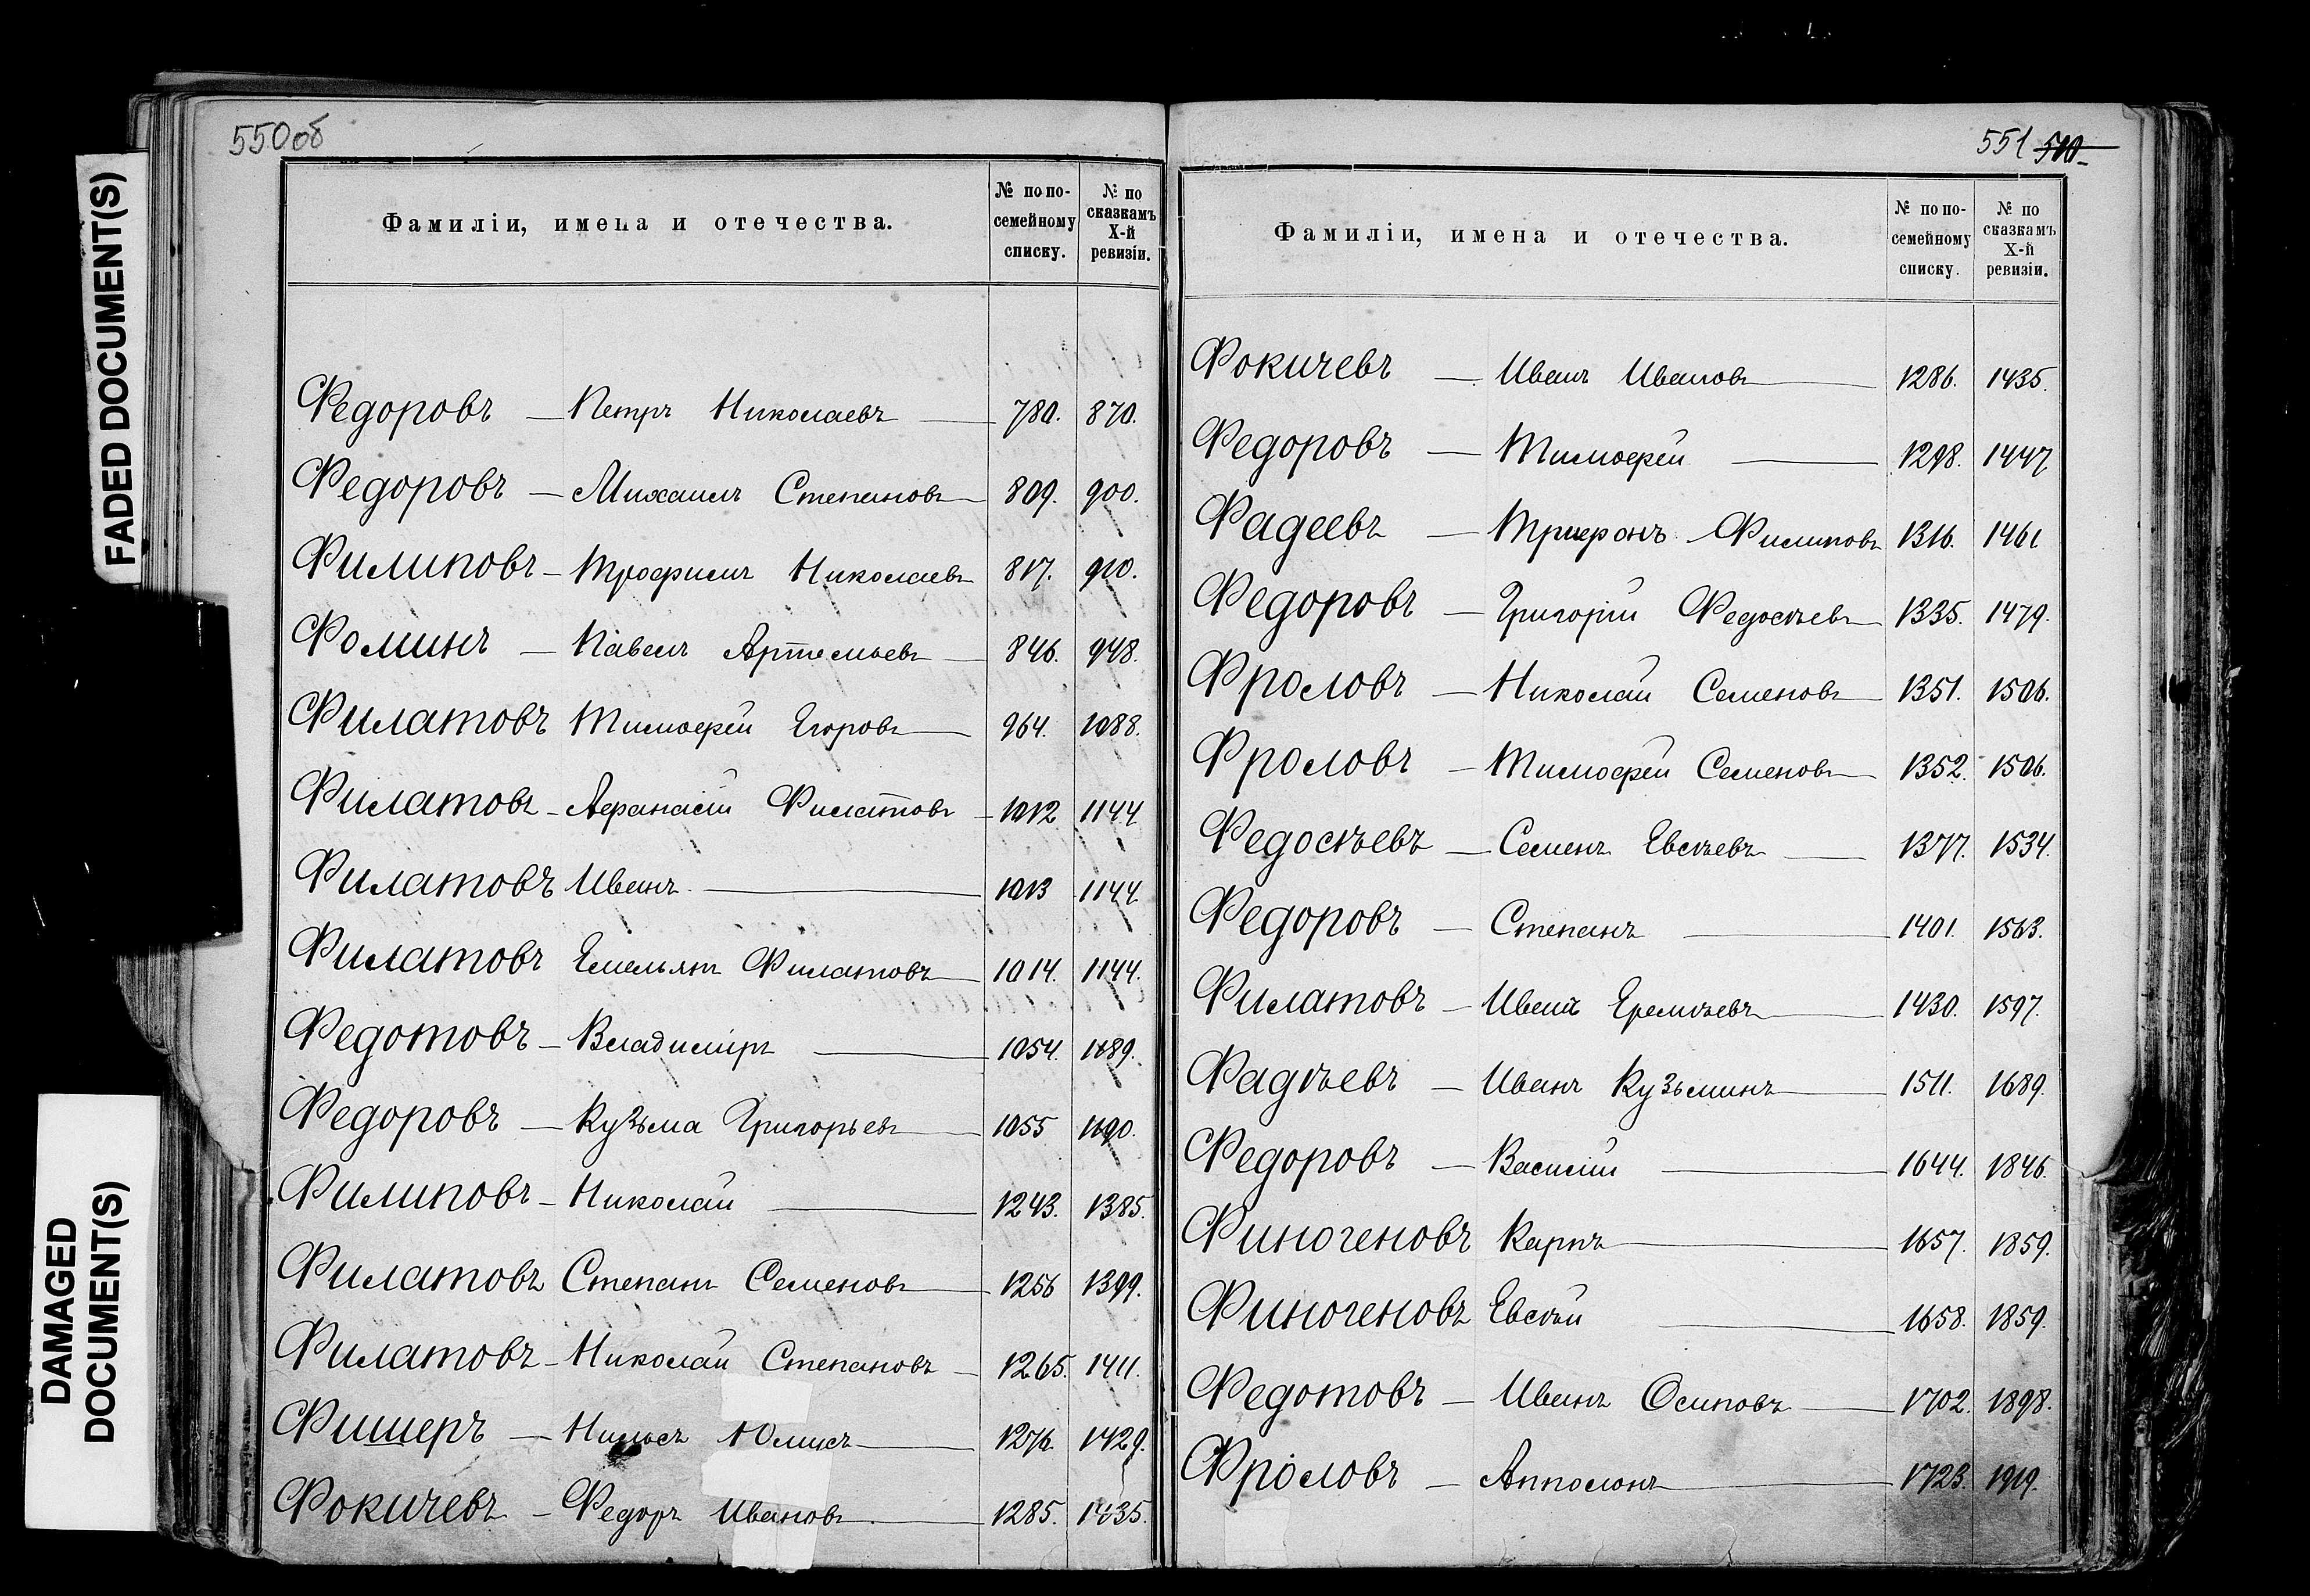 550об
Фамиліи, имена и отечества. № по по-семейному списку. № по сказкамъ X-й ревизіи.
Федоровъ — Петръ Николаевъ — 780. 870.
Федоровъ — Михаилъ Степановъ — 809. 900.
Филиповъ — Трофимъ Николаевъ 817. 910.
Фоминъ — Павелъ Артемьевъ — 846. 948.
Филатовъ Тимофей Егоровъ — 964. 1088.
Филатовъ — Афанасій Филатовъ — 1012 1144
Филатовъ Иванъ — 1013 1144
Филатовъ Емельянъ Филатовъ — 1014. 1144.
Федотовъ — Владиміръ — 1054. 1189.
Федоровъ — Кузьма Григорьевъ — 1055 1190.
Филиповъ — Николай — 1243. 1385.
Филатовъ Степанъ Семеновъ — 1256 1399.
Филатовъ — Николай Степановъ — 1265. 1411.
Фишеръ — 1276. 1429.
Фокичевъ — Федоръ Ивановъ — 1285. 1435.
551 510
Фамиліи, имена и отечества. № по по-семейному списку. № по сказкамъ X-й ревизіи.
Фокичевъ — Иванъ Ивановъ — 1286. 1435.
Федоровъ — Тимофей — 1298. 1447
Фадеевъ — Трифонъ Филиповъ 1316. 1461
Федоровъ — Григорій Федосѣевъ — 1335. 1479.
Фроловъ — Николай Семеновъ — 1351. 1506.
Фроловъ — Тимофей Семеновъ — 1352. 1506.
Федосѣевъ — Семенъ Евсѣевъ — 1377. 1534.
Федоровъ — Степанъ — 1401. 1563.
Филатовъ — Иванъ Еремѣевъ — 1430. 1597.
Фадѣевъ — Иванъ Кузьминъ — 1511. 1689.
Федоровъ — Василій — 1644. 1846.
Финогеновъ Карпъ — 1657. 1859.
Финогеновъ Евсѣй — 1658. 1859.
Федотовъ — Иванъ Осиповъ — 1702. 1898.
Фроловъ — Апполонъ — 1723. 1919.
FADED DOCUMENT(S)
DAMAGED
DOCUMENT(S)